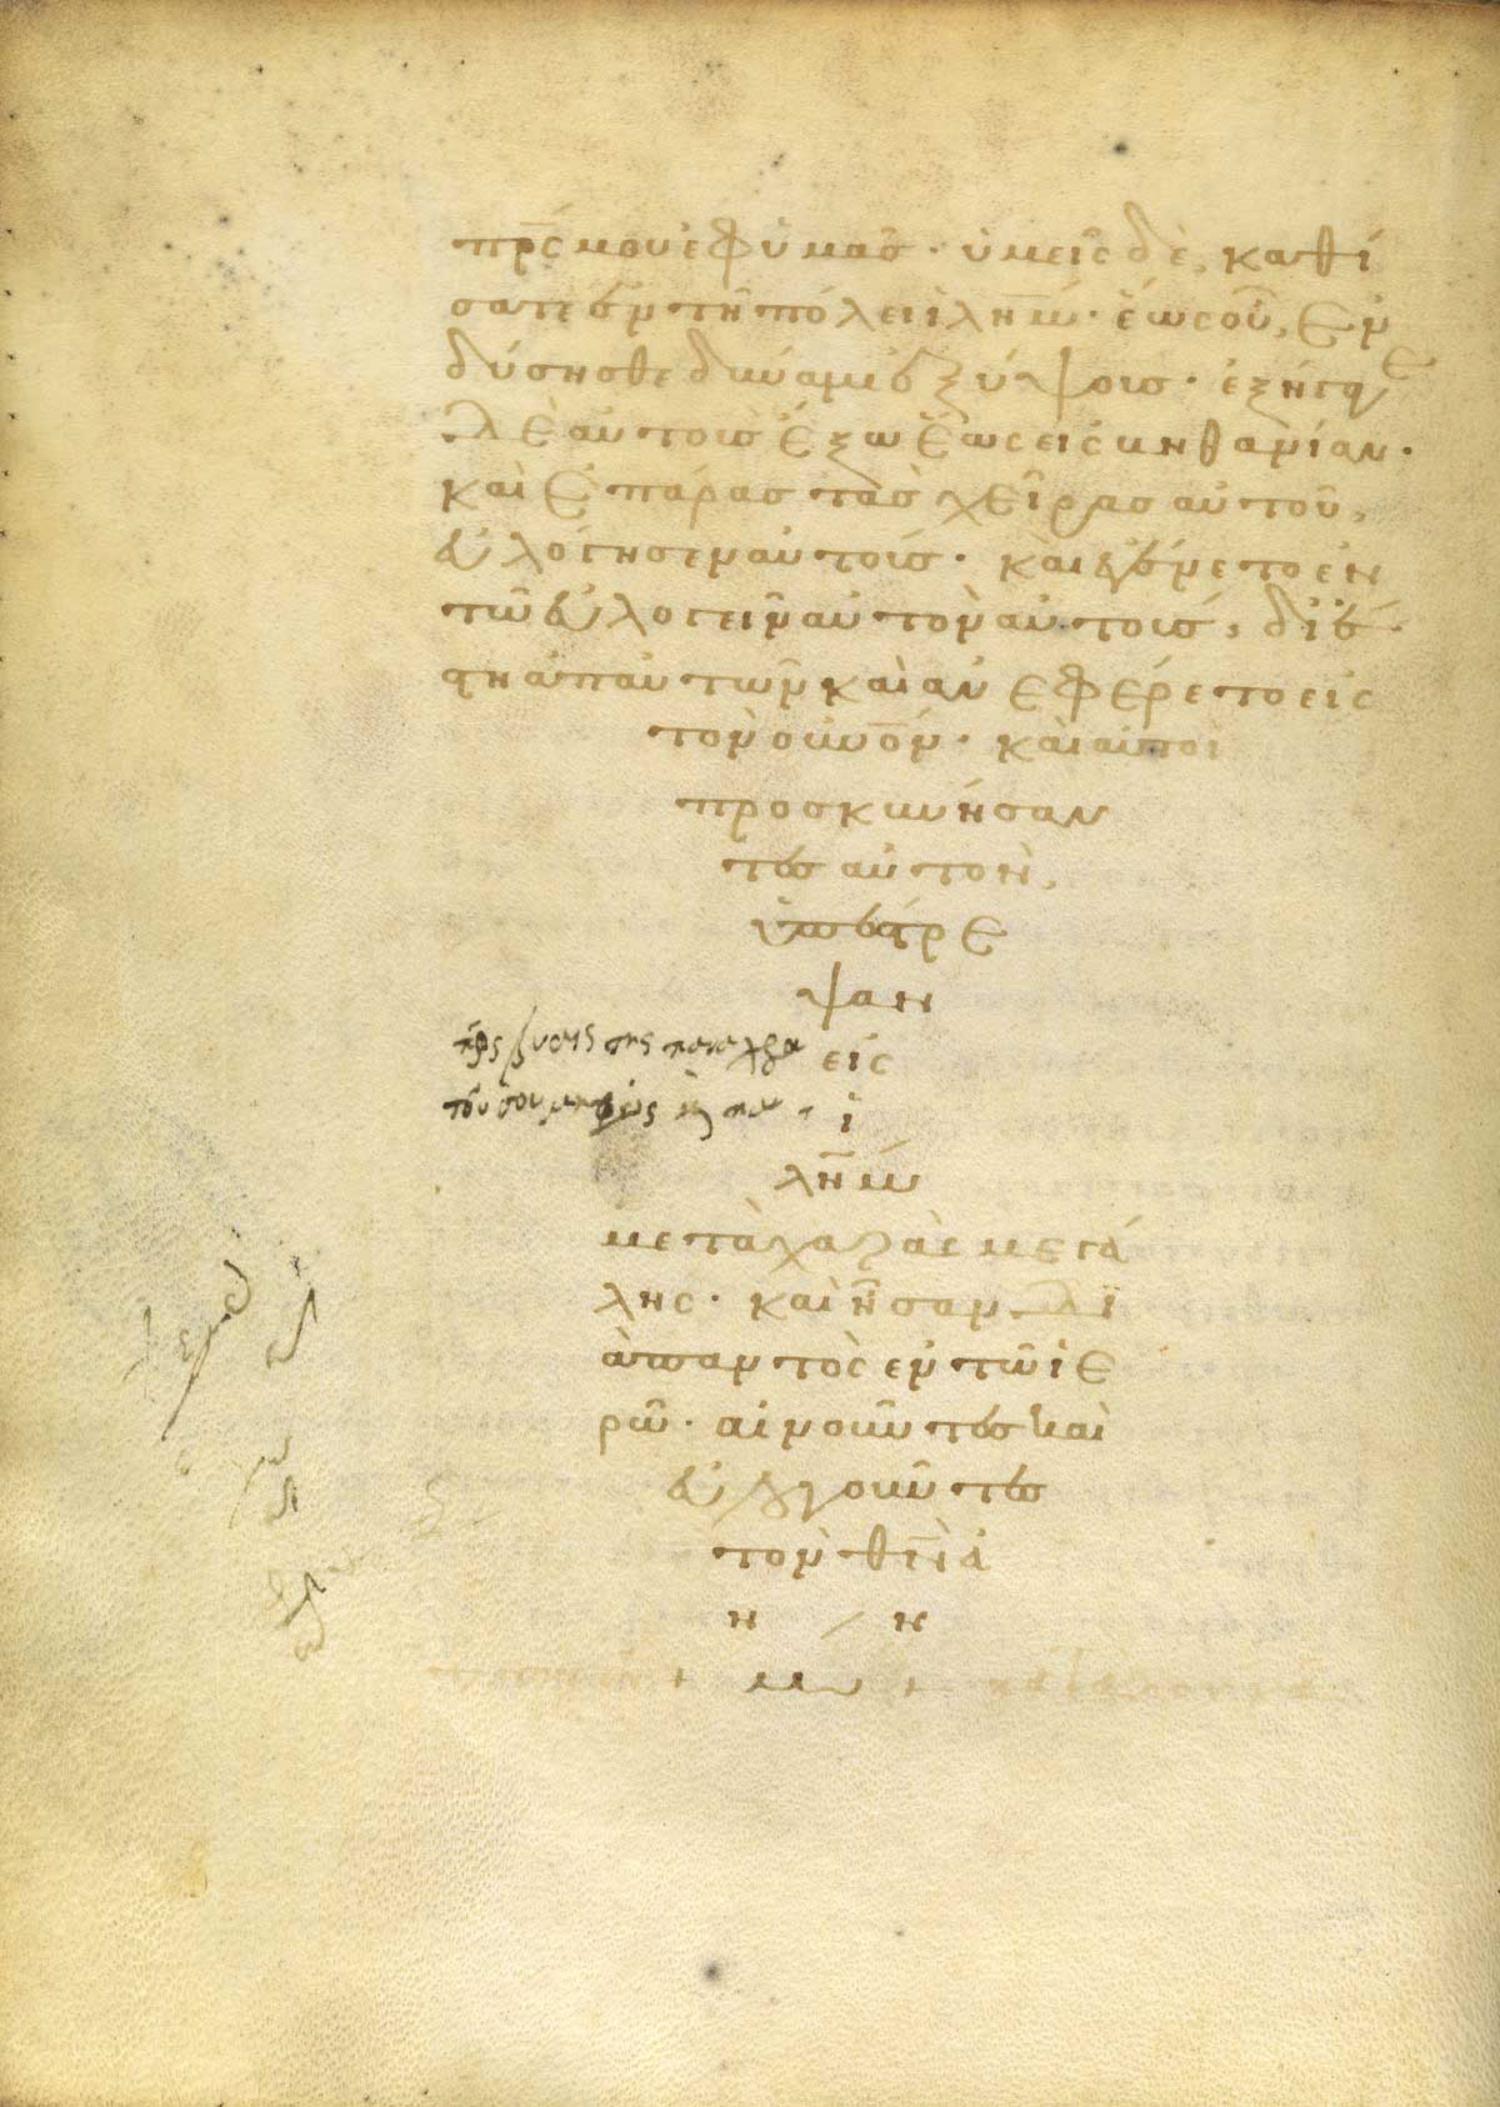 πρ̅ς μου ἐφ ὑμασ· ὑμεῖς δὲ, καθί
σατε ἐν τῆ πόλει ἱλη̅μ· ἕως οὗ, ἐν
δύσησθε δύναμιν ἐξ ὕψουσ· ἐξήγαγε
δὲ αὐτοὺσ ἔξω ἕως εἰς βηθανίαν·
καὶ ἐπάρασ τὰσ χεῖρασ αὐτοῦ,
εὐλόγησεν αὐτούσ· καὶ ἐγένετο ἐν
τῶ εὐλογεῖν αὐτὸν αὐτούσ, διέ
στη ἀπ αὐτῶν καὶ ἀνεφέρετο εἰς
τὸν οὐνο̅ν· καὶ αὐτοὶ
προσκυνήσαν
τεσ αὐτὸν,
ὑπέστρε
ψαν
εἰς
ἱ
λη̅μ
μετὰ χαρᾶς μεγά
λης· καὶ ἦσαν δϊ
ὰπαντὸς ἐν τῶ ἱε
ρῶ· αἰνοῦντεσ καὶ
εὐλογοῦντεσ
τὸν θν̅ ἀ
μὴν